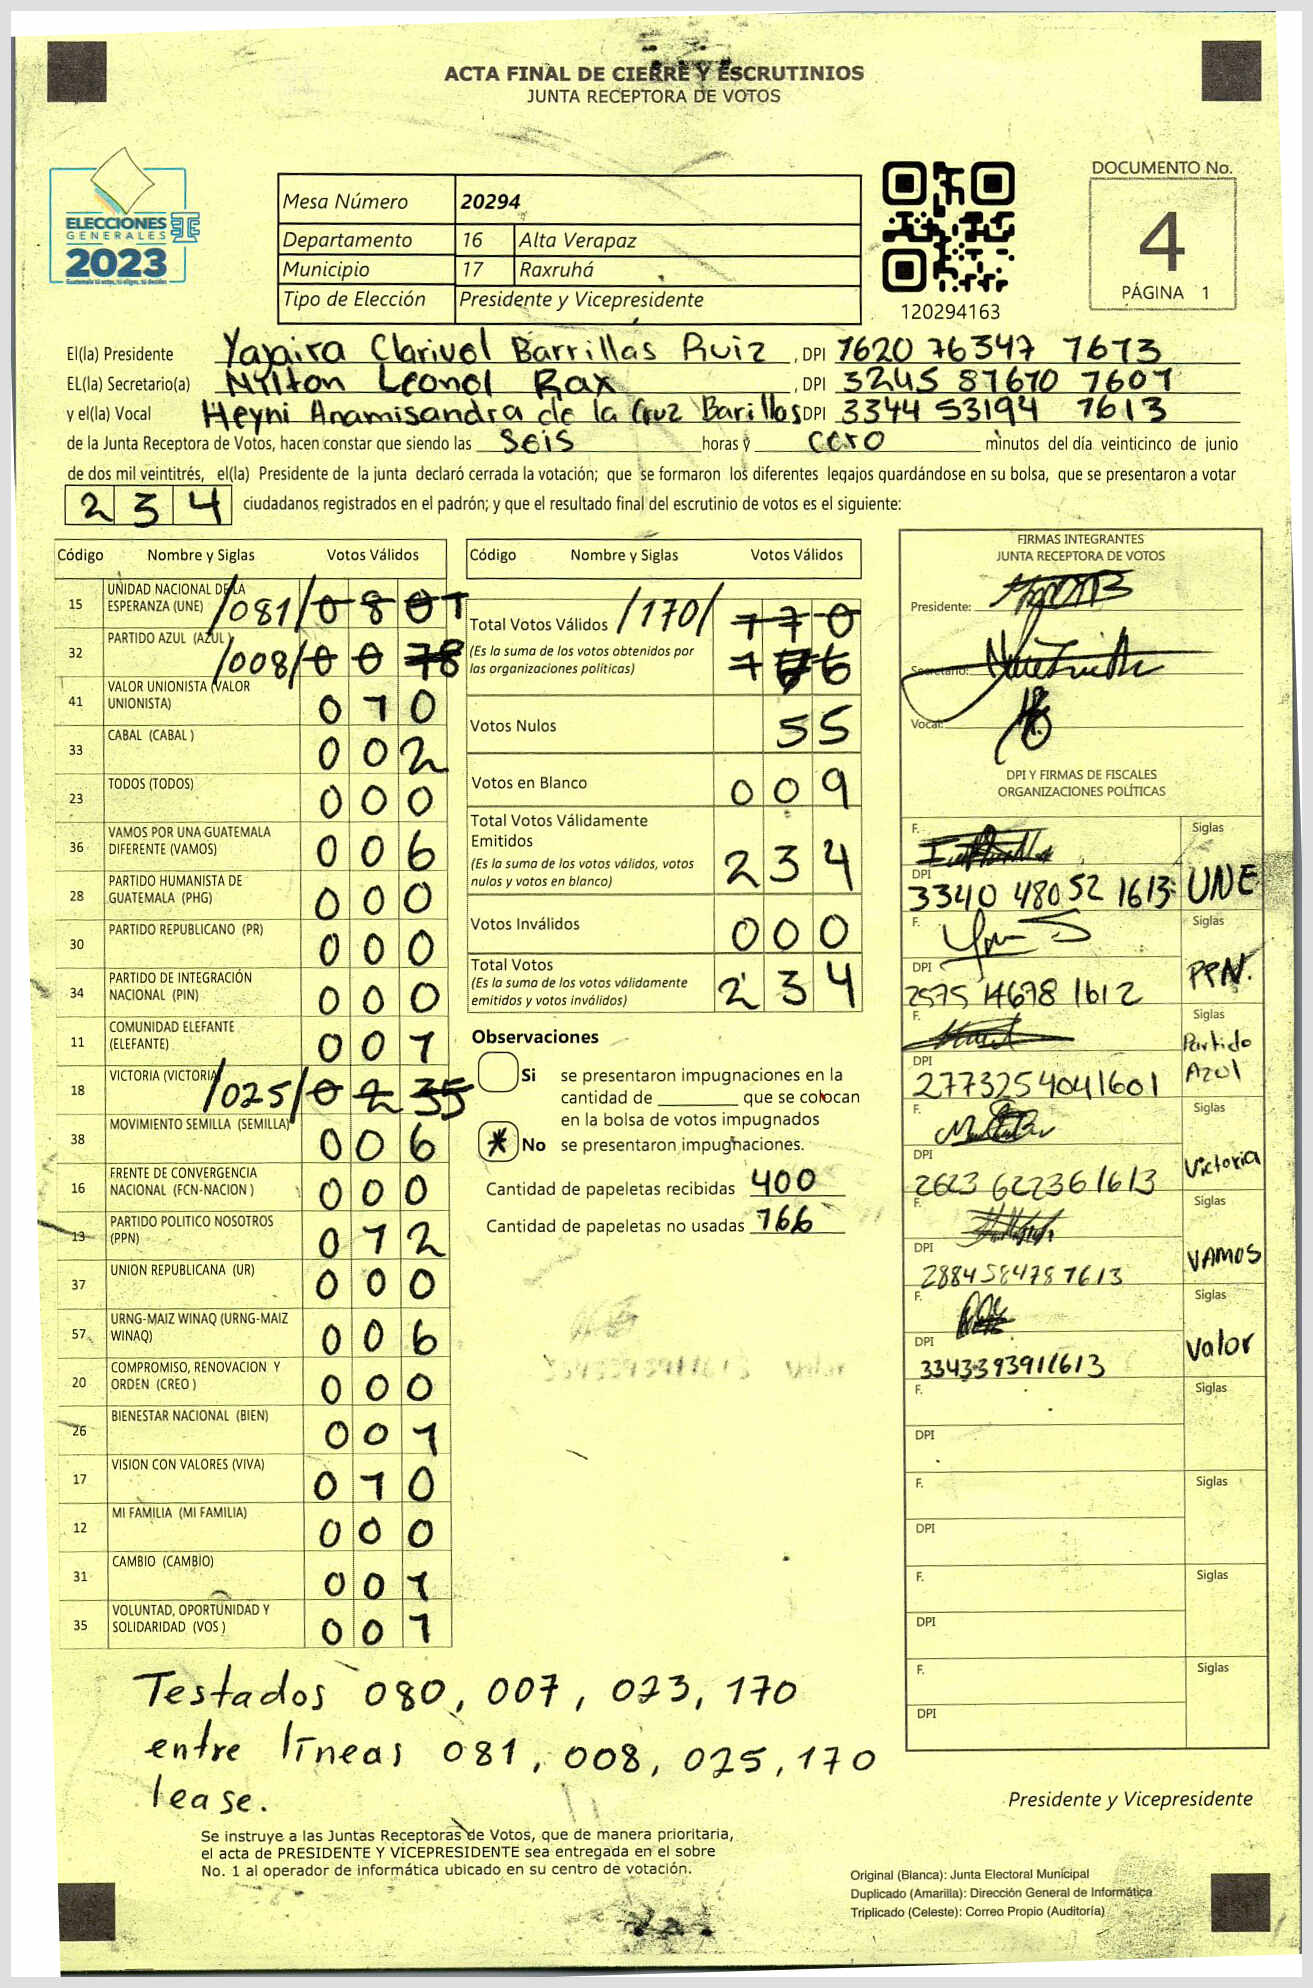 ACTA FINAL DE CIERRE Y ESCRUTINIOS
JUNTA RECEPTORA DE VOTOS
ELECCIONES
GENERALES
2023
Mesa Número 20294
Departamento 16 Alta Verapaz
Municipio 17 Raxruhá
Tipo de Elección Presidente y Vicepresidente
120294163
DOCUMENTO No.
4
PÁGINA 1
El(la) Presidente Yajaira Clarivel Barrillas Ruiz, DPI 1620 76347 1613
EL(la) Secretario(a) Nylton Leonel Rax, DPI 3245 87670 1601
y el(la) Vocal Heyni Anamisandra de la Cruz Barillos DPI 3344 53194 1613
de la Junta Receptora de Votos, hacen constar que siendo las seis horas y cero minutos del día veinticinco de junio
de dos mil veintitrés, el(la) Presidente de la junta declaró cerrada la votación; que se formaron los diferentes legajos guardándose en su bolsa, que se presentaron a votar
234 ciudadanos registrados en el padrón; y que el resultado final del escrutinio de votos es el siguiente:
Código Nombre y Siglas Votos Válidos
15 UNIDAD NACIONAL DE LA ESPERANZA (UNE) /081/
32 PARTIDO AZUL (AZUL) /008/
41 VALOR UNIONISTA (VALOR UNIONISTA) 010
33 CABAL (CABAL ) 002
23 TODOS (TODOS) 000
36 VAMOS POR UNA GUATEMALA DIFERENTE (VAMOS) 006
28 PARTIDO HUMANISTA DE GUATEMALA (PHG) 000
30 PARTIDO REPUBLICANO (PR) 000
34 PARTIDO DE INTEGRACIÓN NACIONAL (PIN) 000
11 COMUNIDAD ELEFANTE (ELEFANTE) 001
18 VICTORIA (VICTORIA) /025/
38 MOVIMIENTO SEMILLA (SEMILLA) 006
16 FRENTE DE CONVERGENCIA NACIONAL (FCN-NACION ) 000
13 PARTIDO POLITICO NOSOTROS (PPN) 012
37 UNION REPUBLICANA (UR) 000
57 URNG-MAIZ WINAQ (URNG-MAIZ WINAQ) 006
20 COMPROMISO, RENOVACION Y ORDEN (CREO ) 000
26 BIENESTAR NACIONAL (BIEN) 001
17 VISION CON VALORES (VIVA) 010
12 MI FAMILIA (MI FAMILIA) 000
31 CAMBIO (CAMBIO) 001
35 VOLUNTAD, OPORTUNIDAD Y SOLIDARIDAD (VOS ) 001
Código Nombre y Siglas Votos Válidos
Total Votos Válidos /170/ 170
(Es la suma de los votos obtenidos por
las organizaciones políticas)
Votos Nulos 55
Votos en Blanco 009
Total Votos Válidamente
Emitidos 234
(Es la suma de los votos válidos, votos
nulos y votos en blanco)
Votos Inválidos 000
Total Votos 234
(Es la suma de los votos válidamente
emitidos y votos inválidos)
Observaciones
Si se presentaron impugnaciones en la
cantidad de ________ que se colocan
en la bolsa de votos impugnados
No se presentaron impugnaciones.
Cantidad de papeletas recibidas 400
Cantidad de papeletas no usadas 166
FIRMAS INTEGRANTES
JUNTA RECEPTORA DE VOTOS
Presidente:
Secretario:
Vocal:
DPI Y FIRMAS DE FISCALES
ORGANIZACIONES POLÍTICAS
F. Siglas
DPI 3340 48052 1613 UNE
F. Siglas
DPI 2575 14678 1612 PPN.
F. Siglas
DPI 2773254041601 Partido Azul
F. Siglas
DPI 2623 622361613 Victoria
F. Siglas
DPI 2884584781613 VAMOS
F. Siglas
DPI 3343393911613 Valor
F. Siglas
DPI
F. Siglas
DPI
F. Siglas
DPI
F. Siglas
DPI
Testados 080, 007, 023, 170
entre líneas 081, 008, 025, 170
lease.
Presidente y Vicepresidente
Se instruye a las Juntas Receptoras de Votos, que de manera prioritaria,
el acta de PRESIDENTE Y VICEPRESIDENTE sea entregada en el sobre
No. 1 al operador de informática ubicado en su centro de votación.
Original (Blanca): Junta Electoral Municipal
Duplicado (Amarilla): Dirección General de Informática
Triplicado (Celeste): Correo Propio (Auditoría)